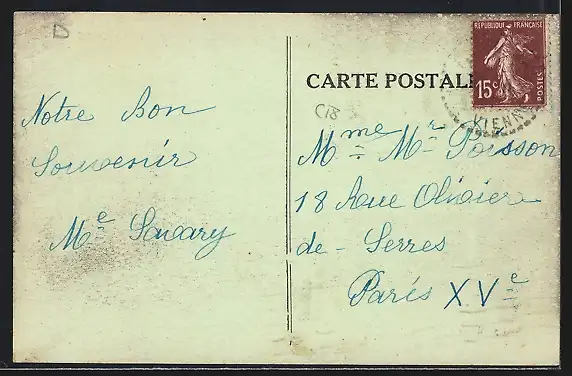 D
Notre Bon
Souvenir
Me Savary
CARTE POSTALE
REPUBLIQUE FRANÇAISE
15c
POSTES
VIENN
C18
Mme Mr Poisson
18 Rue Olivier
de - Serres
Paris XVe